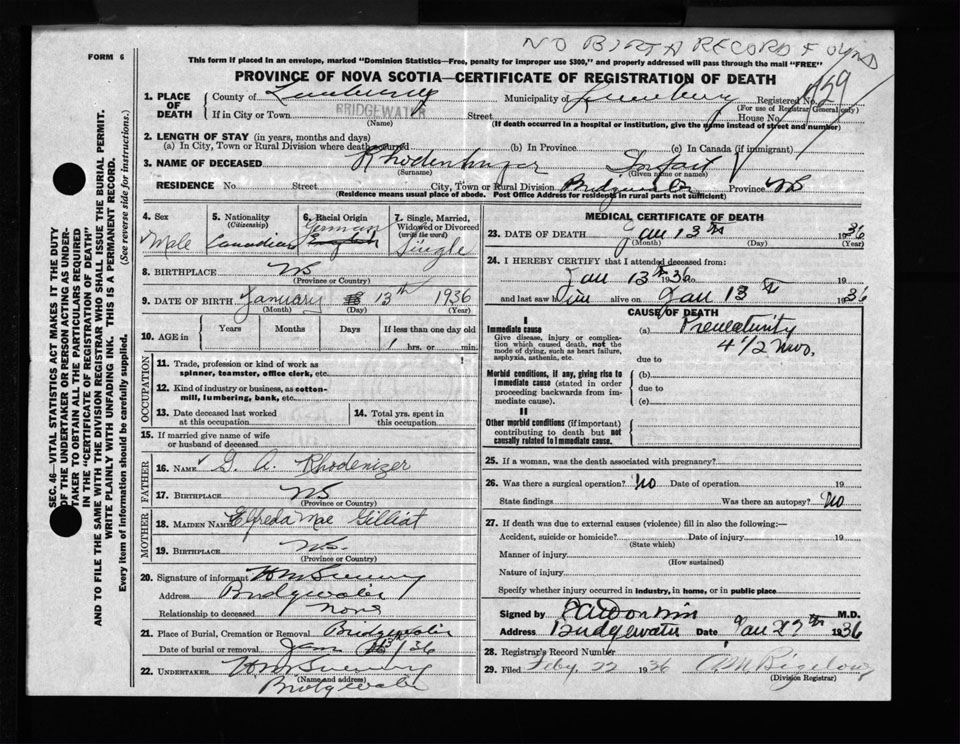 NO BIRTH RECORD FOUND
FORM 6
This form if placed in an envelope, marked "Dominion Statistics—Free, penalty for improper use $300," and properly addressed will pass through the mail "FREE"
PROVINCE OF NOVA SCOTIA—CERTIFICATE OF REGISTRATION OF DEATH
SEC. 46—VITAL STATISTICS ACT MAKES IT THE DUTY
OF THE UNDERTAKER OR PERSON ACTING AS UNDER-
TAKER TO OBTAIN ALL THE PARTICULARS REQUIRED
IN THE "CERTIFICATE OF REGISTRATION OF DEATH"
AND TO FILE THE SAME WITH THE DIVISION REGISTRAR WHO SHALL ISSUE THE BURIAL PERMIT.
WRITE PLAINLY WITH UNFADING INK. THIS IS A PERMANENT RECORD.
Every item of information should be carefully supplied. (See reverse side for instructions.)
1. PLACE OF DEATH
County of Lunenburg Municipality of Lunenburg Registered No.
(For use of Registrar General only)
If in City or Town BRIDGEWATER Street House No.
(Name) (If death occurred in a hospital or institution, give the name instead of street and number)
2. LENGTH OF STAY (in years, months and days)
(a) In City, Town or Rural Division where death occurred (b) In Province (c) In Canada (if immigrant)
3. NAME OF DECEASED Rhodenhizer Infant
(Surname) (Given name or names)
RESIDENCE No Street City, Town or Rural Division Bridgewater Province NS
(Residence means usual place of abode. Post Office Address for residents in rural parts not sufficient)
4. Sex Male
5. Nationality (Citizenship) Canadian
6. Racial Origin German English
7. Single, Married, Widowed or Divorced (write the word) Single
8. BIRTHPLACE NS
(Province or Country)
9. DATE OF BIRTH January 13th 1936
(Month) (Day) (Year)
10. AGE in Years Months Days If less than one day old
1 hrs. or min.
OCCUPATION
11. Trade, profession or kind of work as
spinner, teamster, office clerk, etc.
12. Kind of industry or business, as cotton-
mill, lumbering, bank, etc.
13. Date deceased last worked
at this occupation
14. Total yrs. spent in
this occupation
15. If married give name of wife
or husband of deceased
FATHER
16. NAME G. A. Rhodenizer
17. BIRTHPLACE NS
(Province or Country)
MOTHER
18. MAIDEN NAME Elfreda Mae Gilliat
19. BIRTHPLACE N.S.
(Province or Country)
20. Signature of informant
Address Bridgewater
Relationship to deceased None
21. Place of Burial, Cremation or Removal Bridgewater
Date of burial or removal Jan 13/36
22. UNDERTAKER
(Name and address)
Bridgewater
MEDICAL CERTIFICATE OF DEATH
23. DATE OF DEATH Jan 13th 1936
(Month) (Day) (Year)
24. I HEREBY CERTIFY that I attended deceased from:
Jan 13th 1936 to 19
and last saw him alive on Jan 13th 1936
CAUSE OF DEATH
I
Immediate cause
Give disease, injury or complica-
tion which caused death, not the
mode of dying, such as heart failure,
asphyxia, asthenia, etc.
(a) Prematurity
4 1/2 mos.
due to
Morbid conditions, if any, giving rise to
immediate cause (stated in order
proceeding backwards from im-
mediate cause).
(b)
due to
(c)
II
Other morbid conditions (if important)
contributing to death but not
causally related to immediate cause.
25. If a woman, was the death associated with pregnancy?
26. Was there a surgical operation? No Date of operation 19
State findings Was there an autopsy? No
27. If death was due to external causes (violence) fill in also the following:—
Accident, suicide or homicide? Date of injury 19
(State which)
Manner of injury
(How sustained)
Nature of injury
Specify whether injury occurred in industry, in home, or in public place
Signed by M.D.
Address Bridgewater Date Jan 27th 1936
28. Registrar's Record Number
29. Filed Feby. 22 1936
(Division Registrar)